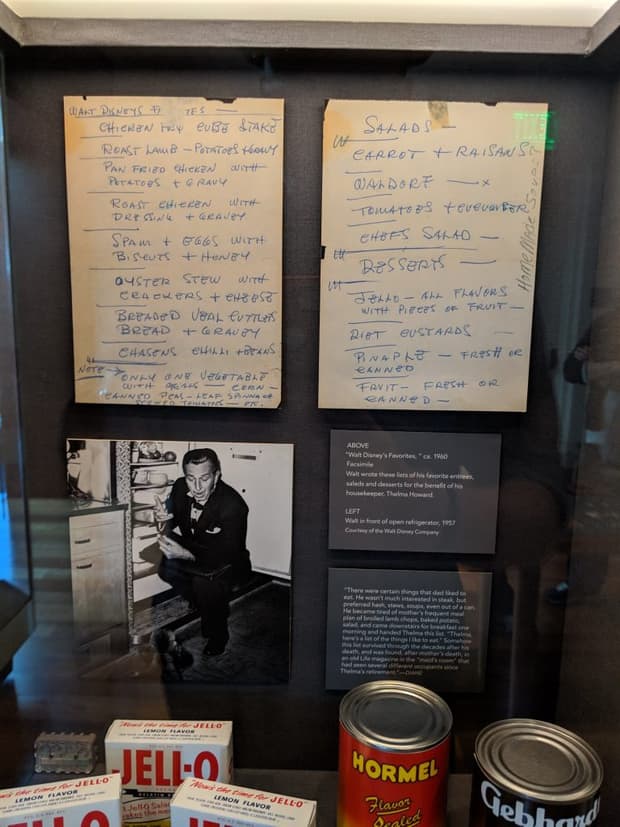 WALT DISNEYS F    TES —
CHICKEN FRY CUBE STAKE
ROAST LAMB — POTATOES + GRAVY
PAN FRIED CHICKEN WITH
POTATOES + GRAVY
ROAST CHICKEN WITH
DRESSING + GRAVEY
SPAM + EGGS WITH
BISCUTS + HONEY
OYSTER STEW WITH
CRACKERS + CHEESE
BREADED VEAL CUTTLETS
BREAD + GRAVEY
CHASENS CHILLI + BEANS
NOTE →
ONLY ONE VEGETABLE
WITH MEALS — CORN —
CANNED PEAS — LEAF SPINNAGE
STEWED TOMATOES — ETC.
SALADS —
CARROT + RAISANS
WALDORF — x
TOMATOES + CUCUMBER
CHEFS SALAD —
DESSERTS —
JELLO — ALL FLAVORS
WITH PIECES OF FRUIT —
DIET CUSTARDS —
PINAPLE — FRESH OR
CANNED
FRUIT — FRESH OR
CANNED —
Home Made Soups
ABOVE
"Walt Disney's Favorites," ca. 1960
Facsimile
Walt wrote these lists of his favorite entrees,
salads and desserts for the benefit of his
housekeeper, Thelma Howard.
LEFT
Walt in front of open refrigerator, 1957
Courtesy of the Walt Disney Company
"There were certain things that dad liked to
eat. He wasn't much interested in steak, but
preferred hash, stews, soups, even out of a can.
He became tired of mother's frequent meal
plan of broiled lamb chops, baked potato,
salad, and came downstairs for breakfast one
morning and handed Thelma this list. "Thelma,
here's a list of the things I like to eat." Somehow
this list survived through the decades after his
death, and was found, after mother's death, in
an old Life magazine in the "maid's room" that
had seen several different occupants since
Thelma's retirement." —DIANE
"Now's the time for JELL-O"
LEMON FLAVOR
JELL-O
"Now's the time for JELL-O"
LEMON FLAVOR
"Now's the time for JELL-O"
LEMON FLAVOR
HORMEL
Flavor
Sealed
Gebhard